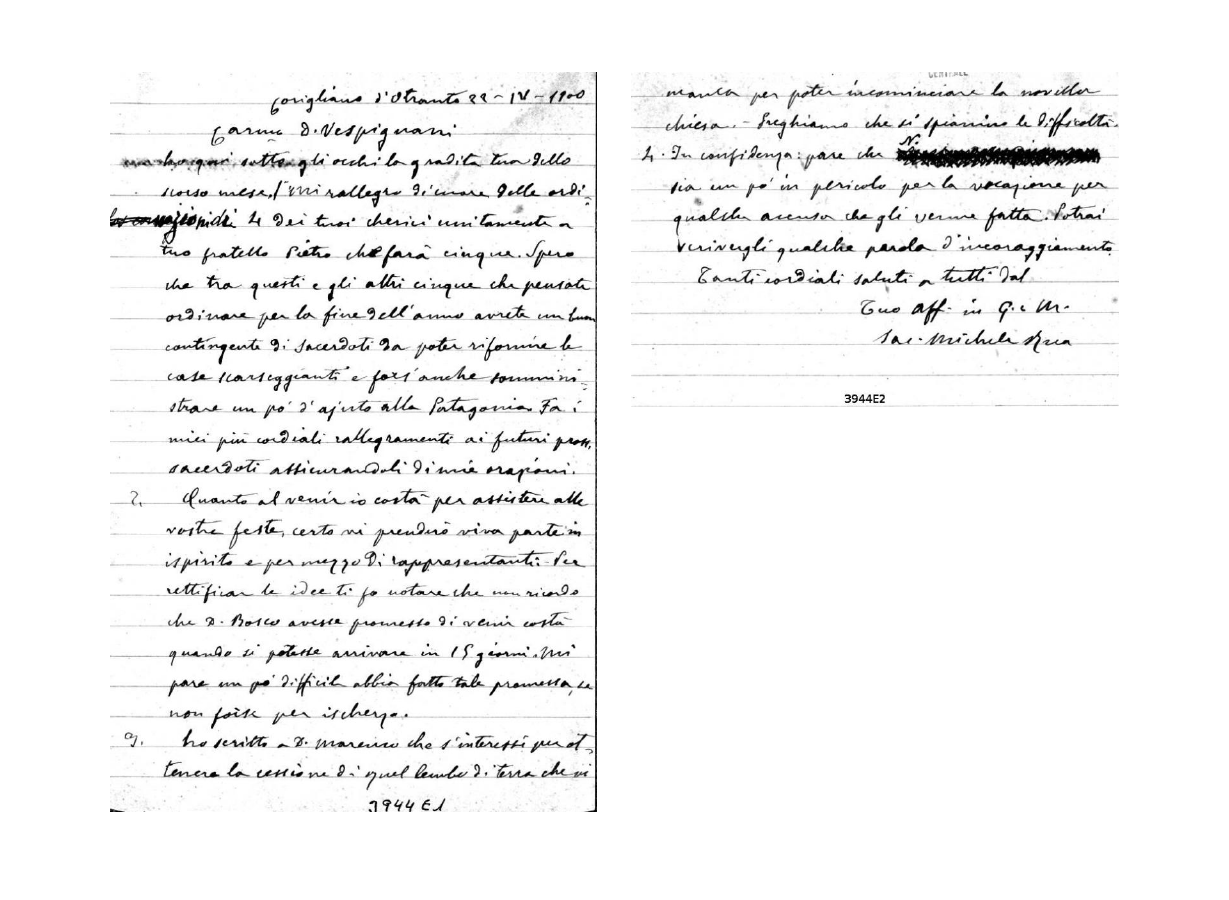 Corigliano d'Otranto 22-IV-1900
Carmo D. Vespignani
ho qui sotto gli occhi la gradita tua dello
scorso mese. Mi rallegro di cuore delle ordi-
nazioni di 4 dei tuoi cherici unitamente a
tuo fratello Pietro che farà cinque. Spero
che tra questi e gli altri cinque che pensate
ordinare per la fine dell'anno avrete un buon
contingente di sacerdoti da poter rifornire le
case scarseggianti e fors'anche sommini-
strare un po' d'ajuto alla Patagonia. Fa i
miei più cordiali rallegramenti ai futuri pross.
sacerdoti assicurandoli di mie orazioni.
2. Quanto al venir io costà per assistere alle
vostre feste, certo vi prenderò viva parte in
ispirito e per mezzo di rappresentanti. Per
rettificar le idee ti fo notare che non ricordo
che D. Bosco avesse promesso di venir costà
quando si potesse arrivare in 15 giorni. Mi
pare un po' difficile abbia fatto tale promessa, se
non fosse per ischerzo.
3. Ho scritto a D. Marenco che s'interessi per ot-
tenere la cessione di quel lembo di terra che vi
3944E1
CENTRALE
manca per poter incominciare la novella
chiesa. - Preghiamo che si spianino le difficoltà.
4. In confidenza: pare che N.
sia un po' in pericolo per la vocazione per
qualche accusa che gli venne fatta. Potrai
scrivergli qualche parola d'incoraggiamento.
Tanti cordiali saluti a tutti dal
Tuo aff. in G. e M.
Sac. Michele Rua
3944E2